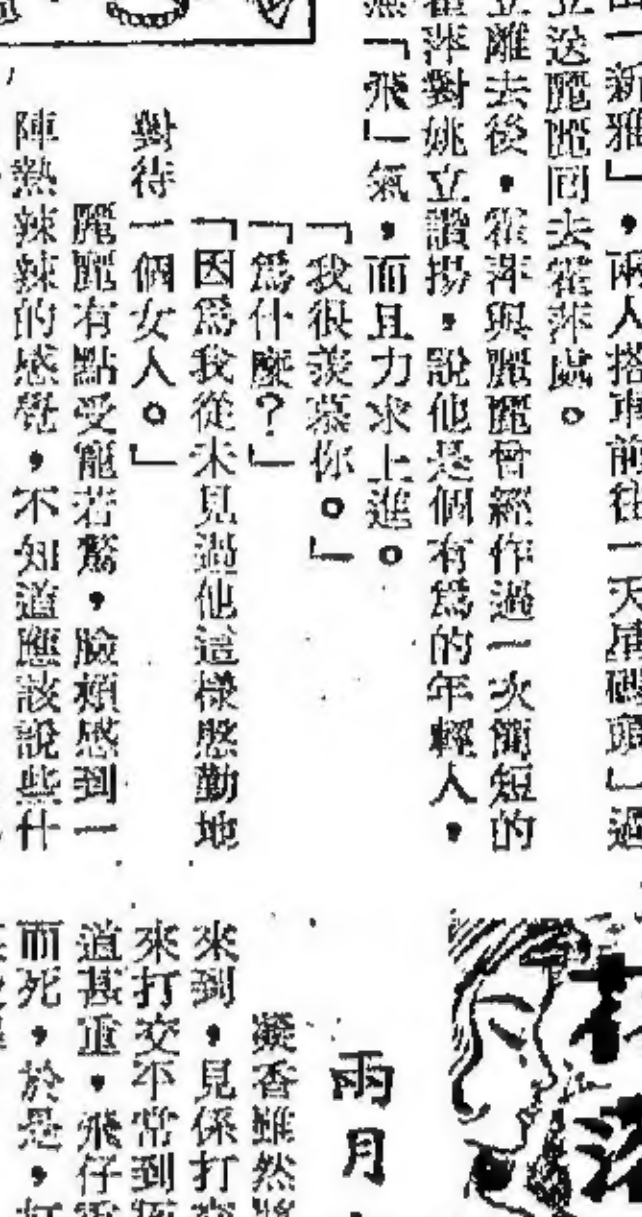 新雅」,兩人搭車前往「天星碼頭」過
立送麗麗回去霍萍處。
立離去後,霍萍與麗麗曾經作過一次簡短的
霍萍對姚立讚揚,說他是個有爲的年輕人,
無「飛」氣,而且力求上進。
「我很羨慕你。」
「爲什麽?」
「因爲我從未見過他這樣慇勤地
對待一個女人。」
麗麗有點受寵若驚,臉頰感到一
陣熱辣辣的感覺,不知道應該說些什
雨月
凝香雖然
來到,見係打
來打交不常到
道甚重,飛仔
而死,於是,打